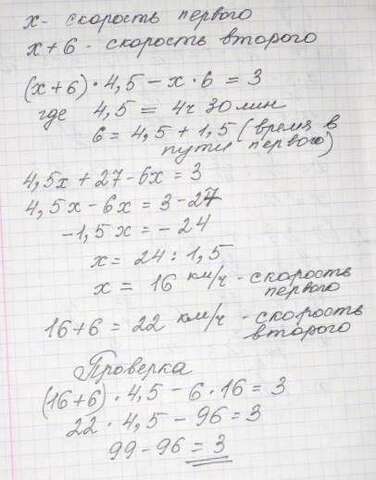 x - скорость первого
x + 6 - скорость второго
(x+6) · 4,5 - x · 6 = 3
где 4,5 = 4ч 30 мин
6 = 4,5 + 1,5 (время в
пути первого)
4,5x + 27 - 6x = 3
4,5x - 6x = 3 - 27
-1,5x = -24
x = 24 : 1,5
x = 16 км/ч - скорость
первого
16 + 6 = 22 км/ч - скорость
второго
Проверка
(16+6) · 4,5 - 6 · 16 = 3
22 · 4,5 - 96 = 3
99 - 96 = 3